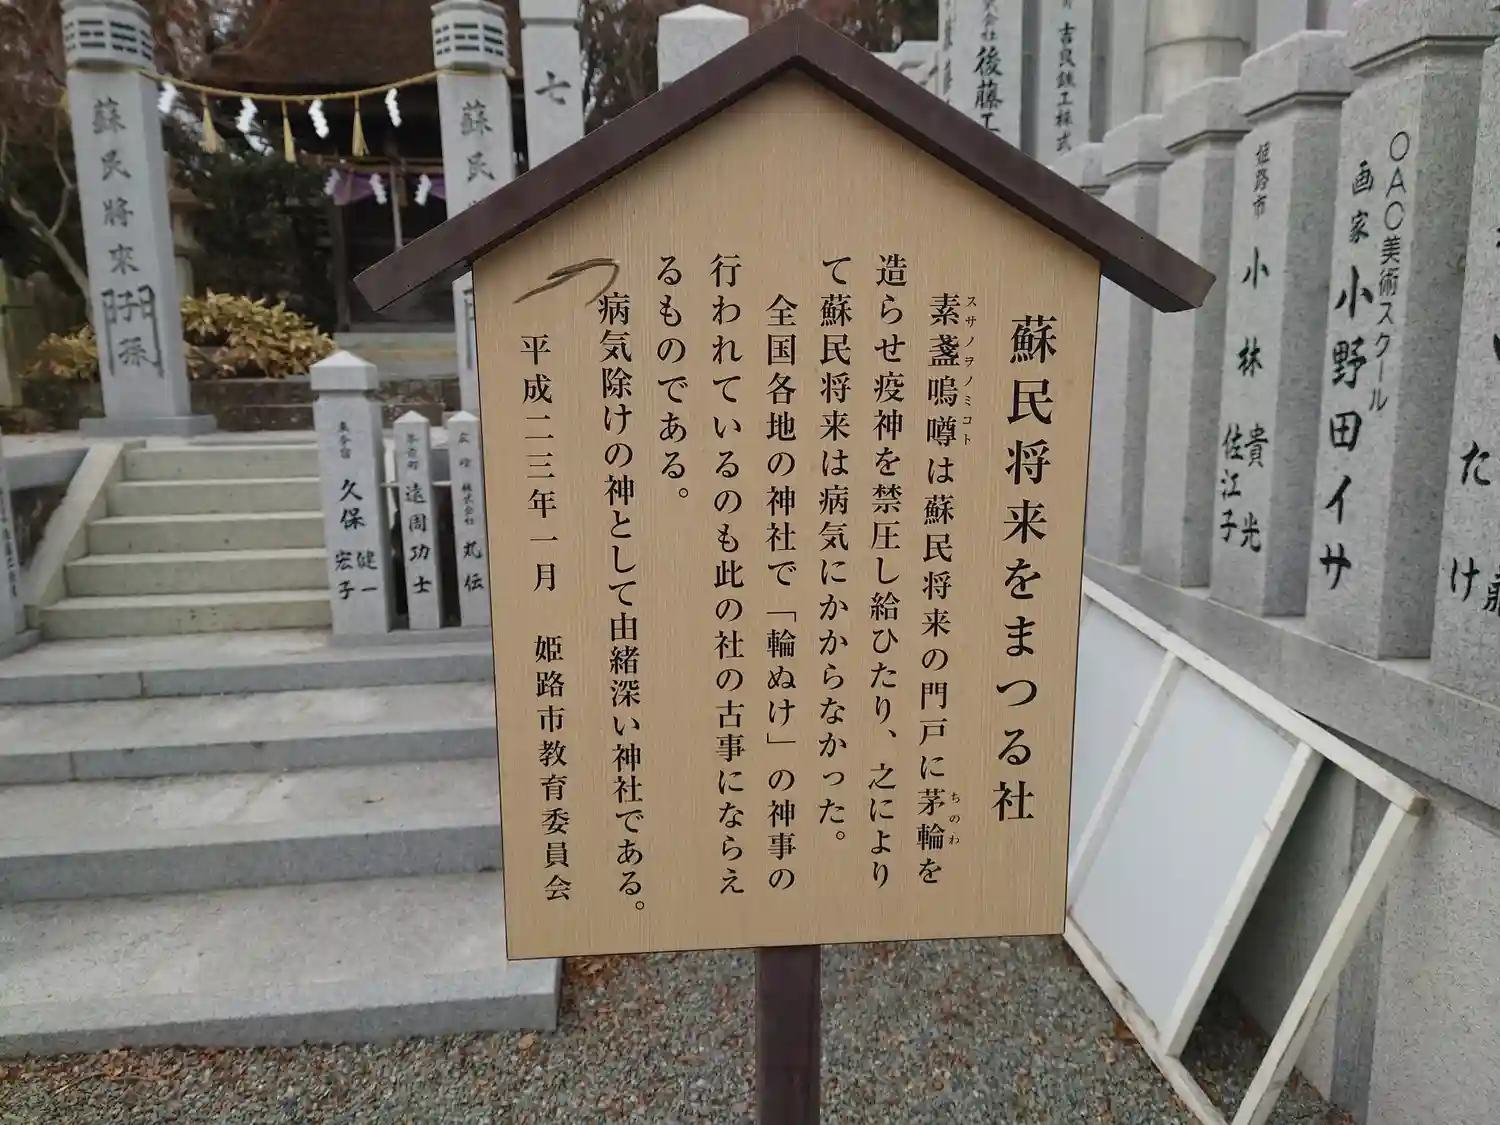 蘇民将来をまつる社
素盞嗚噂は蘇民将来の門戸に茅輪を
スサノヲノミコト
ちのわ
造らせ疫神を禁圧し給ひたり、之により
て蘇民将来は病気にかからなかった。
全国各地の神社で「輪ぬけ」の神事の
行われているのも此の社の古事にならえ
るものである。
病気除けの神として由緒深い神社である。
平成二三年一月 姫路市教育委員会
蘇民將來子孫
蘇民
七
後藤工
吉良鉄工株式
姫路市 小林 貴光
佐江子
OAC美術スクール
画家 小野田イサ
久保 健一
宏子
遠周功士
株式会社 丸伝
たけ